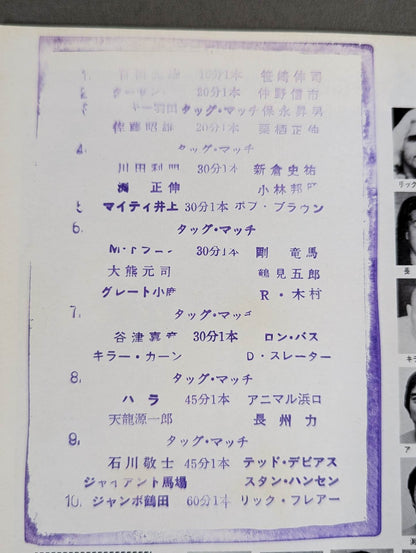 1. 10分1本 笹崎伸司
2. ターザン 20分1本 仲野信市
3. 羽田 タッグ・マッチ 保永昇男
佐藤昭雄 20分1本 栗栖正伸
4. タッグ・マッチ
川田利明 30分1本 新倉史祐
渕 正伸 小林邦
5 マイティ井上 30分1本 ボブ・ブラウン
6. タッグ・マッチ
30分1本 剛 竜馬
大熊元司 鶴見五郎
グレート小鹿 R・木村
7. タッグ・マッチ
谷津嘉章 30分1本 ロン・バス
キラー・カーン D・スレーター
8. タッグ・マッチ
ハラ 45分1本 アニマル浜口
天龍源一郎 長州 力
9. タッグ・マッチ
石川敬士 45分1本 テッド・デビアス
ジャイアント馬場 スタン・ハンセン
10. ジャンボ鶴田 60分1本 リック・フレアー
リック
長